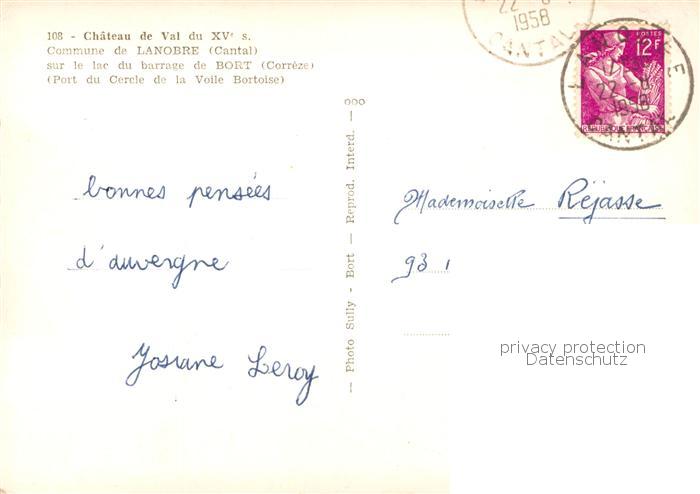 108 - Château de Val du XVe s.
Commune de LANOBRE (Cantal)
sur le lac du barrage de BORT (Corrèze)
(Port du Cercle de la Voile Bortoise)
22 8
1958
CANTAL
POSTES
12F
REPUBLIQUE FRANÇAISE
LANOBRE
22 8
1958
CANTAL
bonnes pensées
d'auvergne
Josiane Leroy
— Photo Sully - Bort — Reprod. Interd. — ooo
Mademoiselle Réjasse
93
privacy protection
Datenschutz